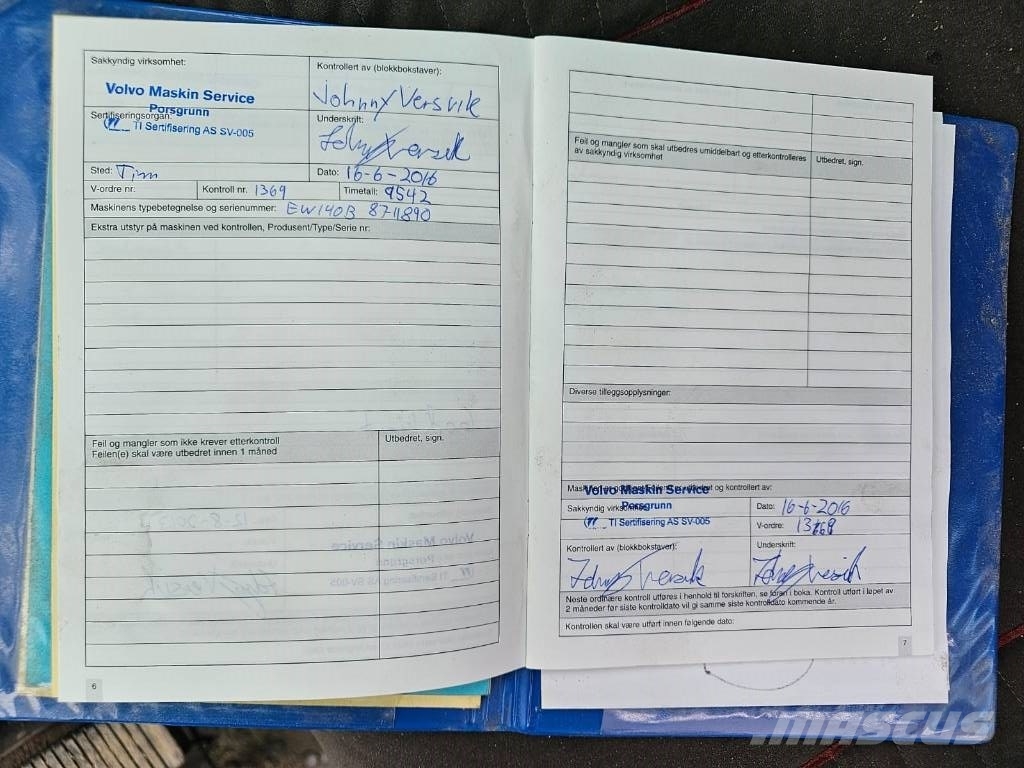 Sakkyndig virksomhet:
Volvo Maskin Service
Porsgrunn
Sertifiseringsorgan:
TI Sertifisering AS SV-005
Kontrollert av (blokkbokstaver):
Johnny Versvik
Underskrift:
Sted:
Dato: 16-6-2016
V-ordre nr:
Kontroll nr. 1369
Timetall: 9542
Maskinens typebetegnelse og serienummer: EW140B 8711890
Ekstra utstyr på maskinen ved kontrollen, Produsent/Type/Serie nr:
Feil og mangler som ikke krever etterkontroll
Feilen(e) skal være utbedret innen 1 måned
Utbedret, sign.
6
Feil og mangler som skal utbedres umiddelbart og etterkontrolleres
av sakkyndig virksomhet
Utbedret, sign.
Diverse tilleggsopplysninger:
og kontrollert av:
Volvo Maskin Service
Sakkyndig
Porsgrunn
TI Sertifisering AS SV-005
Dato: 16-6-2016
V-ordre:
Kontrollert av (blokkbokstaver):
Underskrift:
Neste ordinære kontroll utføres i henhold til forskriften, se foran i boka. Kontroll utført i løpet av
2 måneder før siste kontrolldato vil gi samme siste kontrolldato kommende år.
Kontrollen skal være utført innen følgende dato:
7
MASCUS